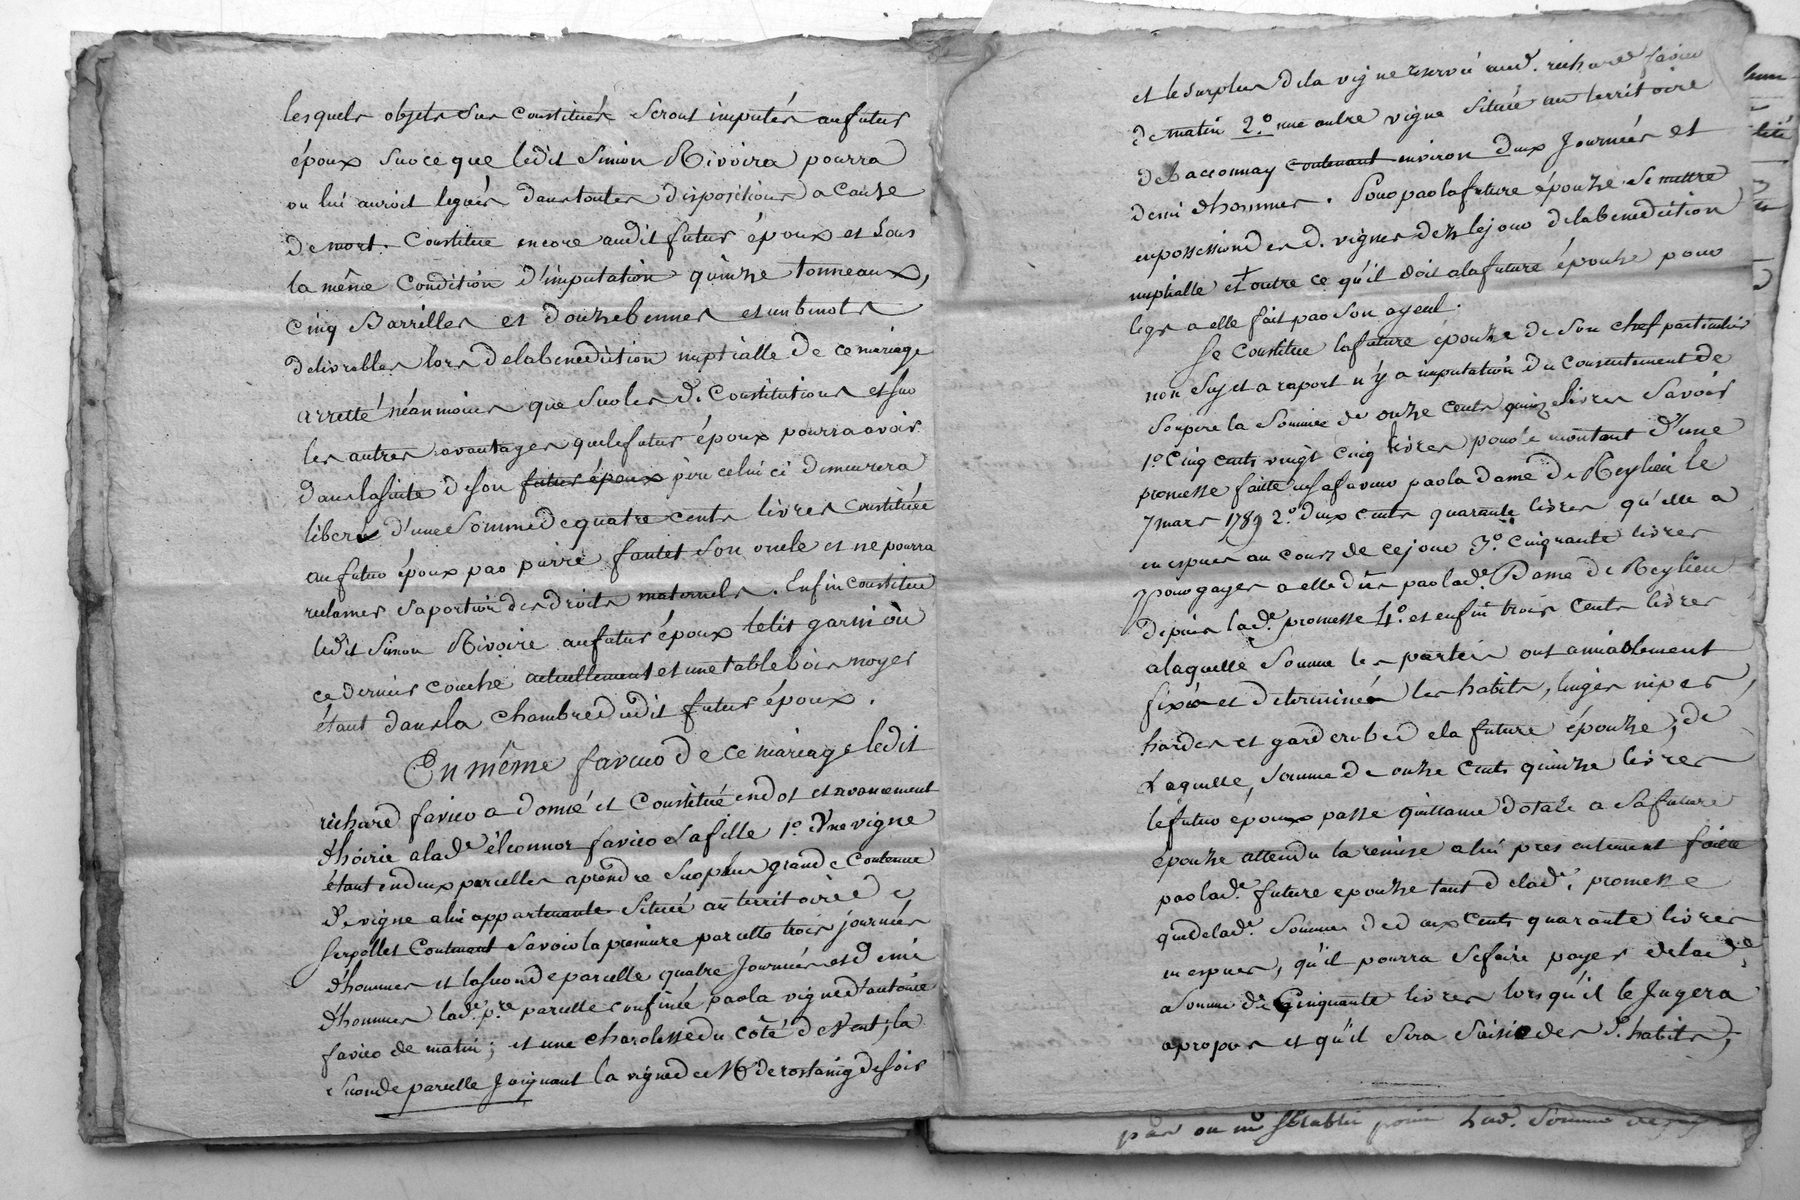 lesquels objets sus constitués seront imputés au futur
époux sur ce que ledit Simon Rivoire pourra
ou lui auroit legués dans toutes dispositions a cause
de mort. Constitue encore audit futur époux et sous
la même condition d'imputation quinze tonneaux,
cinq Barrilles et douze bennes et un benots
delivrables lors de la benediction nuptialle de ce mariage
arretté néanmoins que sur les d. Constitutions et sur
les autres avantages que le futur époux pourra avoir
dans la suite de son futur époux père celui ci demeurera
liberé d'une Somme de quatre cents livres constituée
au futur époux par pierre son oncle et ne pourra
reclamer sa portion des droits maternels. Enfin constitue
ledit Simon Rivoire au futur époux le lit garni où
ce dernier couche actuellement et une table bois noyer
étant dans la chambre dudit futur époux.
En même faveur de ce mariage ledit
richard favier a donné et Constitué en dot et avancement
d'hoirie a lade éléonnor favier sa fille 1º Une vigne
étant en deux parcelles a prendre sur plus grande contenue
de vigne a lui appartenante Située au territoire de
Serpollet Contenant savoir la premiere parcelle trois journées
d'hommes et la seconde parcelle quatre Journées et demi
d'hommes lade pre parcelle confinée par la vigne d'antoine
favier de matin; et une charolesse du côté de Vent; la
seconde parcelle Joignant la vigne de Mr de rostaing de soir
et le surplus de la vigne reservée aud. richard favier
de matin 2º une autre vigne située au territoire
de Bacconnay contenant environ deux Journées et
demi d'hommes. Pour par la future épouze se mettre
en possession desd. vignes dez le jour de la benediction
nuptialle et outre ce qu'il doit a la future épouze pour
legs a elle fait par son ayeul.
Se Constitue la future épouze de son chef particulier
non Sujet a raport n'y a imputation du consentement de
son pere la Somme de onze cents quinze livres Savoir
1º Cinq cents vingt cinq livres pour le montant d'une
promesse faitte en sa faveur par la dame de Reylieu le
7 mars 1789 2º deux cents quarante livres qu'elle a
en espèces au cours de ce jour 3º cinquante livres
pour gages a elle dûs par lade Dame de Reylieu
depuis lade promesse 4º et enfin trois cents livres
a laquelle Somme les parties ont amiablement
fixés et determinés les habits, linges nipes,
hardes et garderobe de la future épouze; de
Laquelle, somme de onze cents quinze livres
le futur époux passe quittance dotale a sa future
épouze attendu la remise a lui presentement faitte
par lade future epouze tant de lade promesse
que de lade Somme de deux cents quarante livres
en espèces, qu'il pourra se faire payer de lade
a Somme de Cinquante livres lorsqu'il le Jugera
a propos et qu'il sera saisi des d. habits,
par ou Lad. Somme de